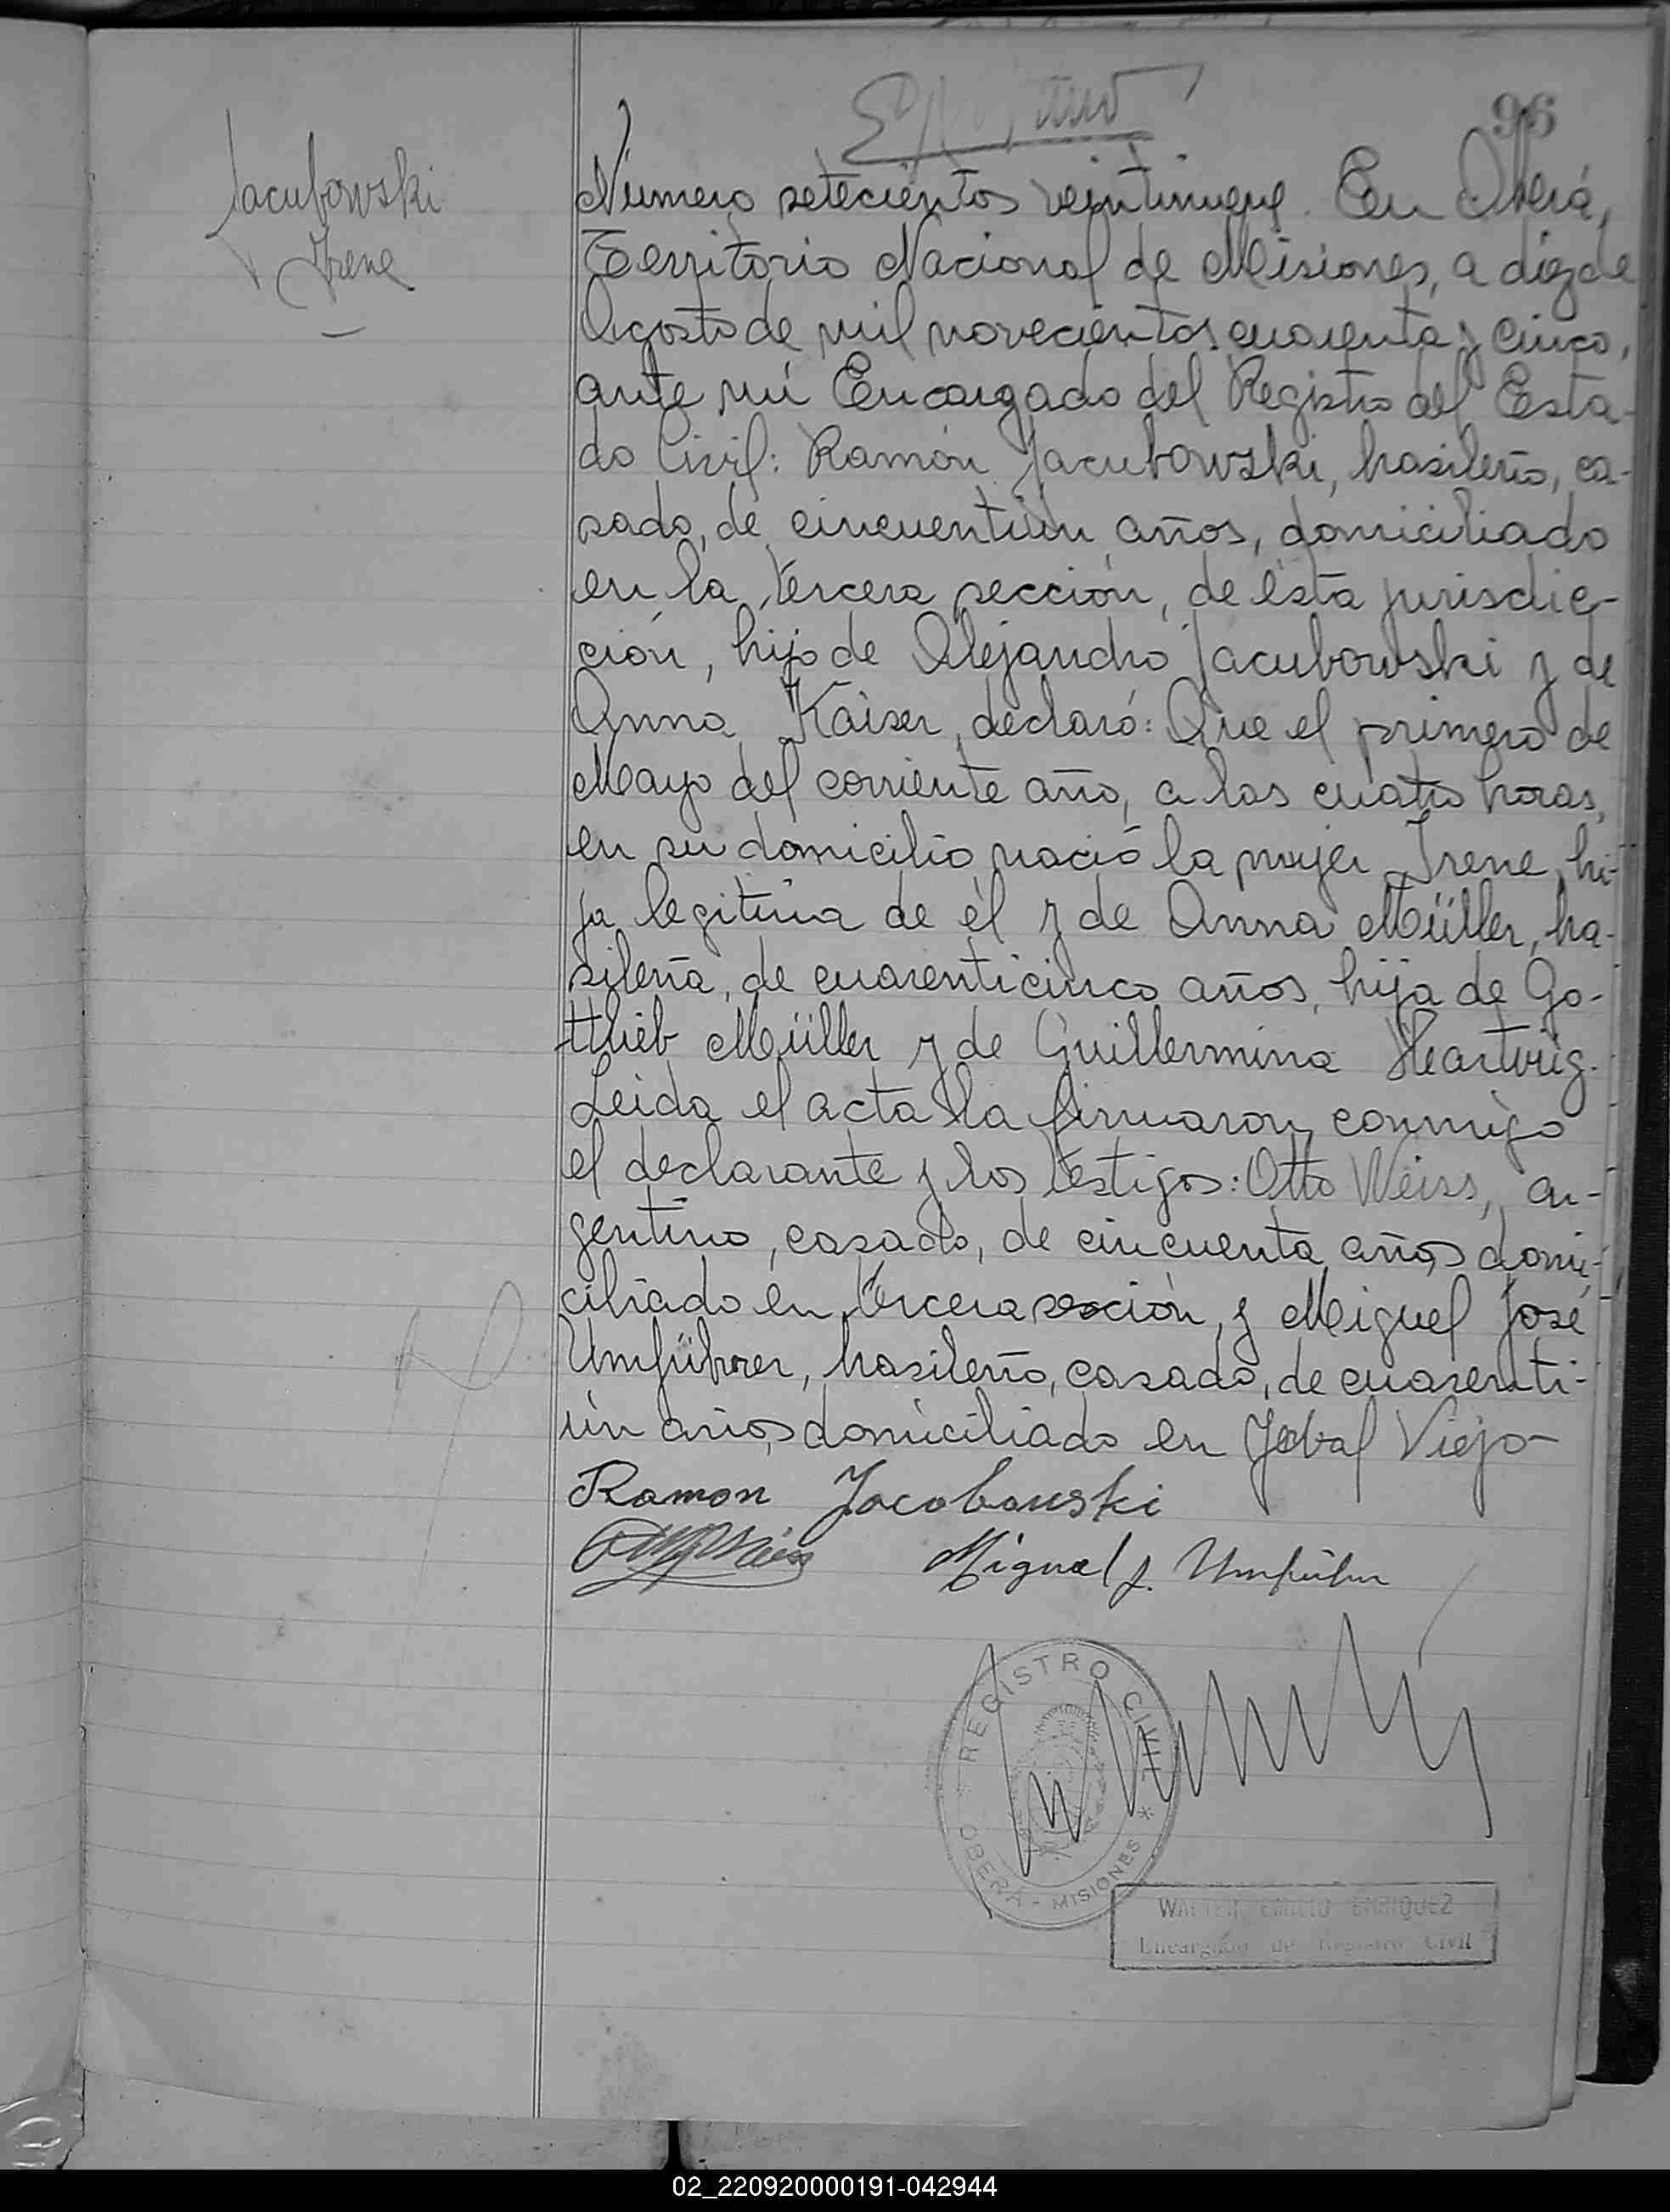 96
Jacubowski
Irene
Número setecientos veintinueve. En Oberá,
Territorio Nacional de Misiones, a diez de
Agosto de mil novecientos cuarenta y cinco,
ante mí Encargado del Registro del Esta-
do Civil: Ramón Jacubowski, brasileño, ca-
sado, de cincuentiún años, domiciliado
en la tercera sección, de ésta jurisdic-
ción, hijo de Alejandro Jacubowski y de
Anna Kaiser, declaró: Que el primero de
Mayo del corriente año, a las cuatro horas,
en su domicilio nació la mujer Irene, hi-
ja legitima de él y de Anna Müller, bra-
sileña, de cuarenticinco años, hija de Go-
ttlieb Müller y de Guillermina Heartwig.
Leida el acta la firmaron conmigo
el declarante y los testigos: Otto Weiss, ar-
gentino, casado, de cincuenta años domi-
ciliado en tercera sección, y Miguel José
Umführer, brasileño, casado, de cuarenti-
ún años domiciliado en Yerbal Viejo-
Ramon Jacobowski
Miguel J. Umführer
REGISTRO CIVIL
OBERÁ - MISIONES *
WALTER EMILIO ENRIQUEZ
Encargado de Registro Civil
02_220920000191-042944